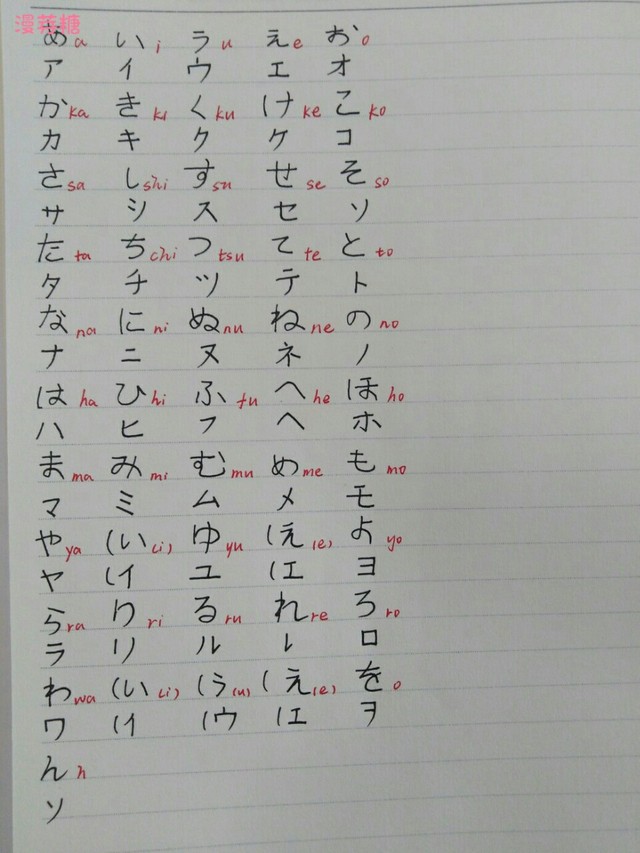 漫莓糖
あa い i う u え e お o
ア イ ウ エ オ
か ka き ki く ku け ke こ ko
カ キ ク ケ コ
さ sa し shi す su せ se そ so
サ シ ス セ ソ
た ta ち chi つ tsu て te と to
タ チ ツ テ ト
な na に ni ぬ nu ね ne の no
ナ ニ ヌ ネ ノ
は ha ひ hi ふ fu へ he ほ ho
ハ ヒ フ ヘ ホ
ま ma み mi む mu め me も mo
マ ミ ム メ モ
や ya (い (i) ゆ yu (え (e) よ yo
ヤ (イ ユ (エ ヨ
ら ra り ri る ru れ re ろ ro
ラ リ ル レ ロ
わ wa (い (i) (う (u) (え (e) を o
ワ (イ (ウ (エ ヲ
ん n
ソ